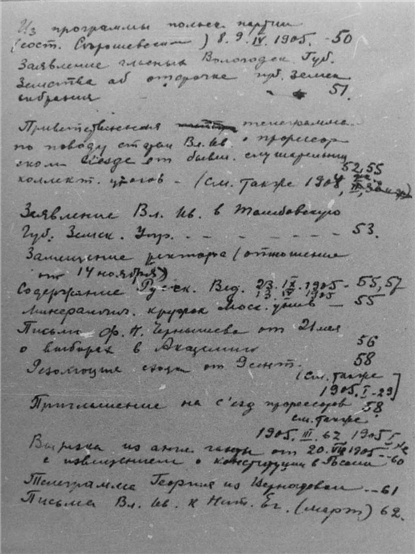 Из программы польск. партии
(сост. Старошевским) 8. 9. IV. 1905. - 50
Заявление гласных Вологодск. Губ.
Земства об отсрочке губ. земск.
собрания - 51.
Приветственная телеграмма
по поводу статьи Вл. Ив. о професор
ском съезде от бывш. слушательниц
52, 55
коллект. уроков - (См. также 1904,
Заявление Вл. Ив. в Тамбовскую
Губ. Земск. Упр. - - - - - - 53.
Замещение ректора (отношение
от 14 ноября)
Содержание Русск. Вед. 23. IX. 1905 - 55, 57
13. IV 1905
Минералогич. кружок Моск. унив - 55
Письмо Ф. Н. Чернышева от 21 мая
о выборах в Академию 56
Резолюция схода от 9 сент. 58
(См. также
1905. I - 29)
Приглашение на съезд професоров 58.
см. также
1905. III. 62, 1905
Вырезка из англ. газеты от 20. VIII 1905
с извещением о конституции в России - 60
Телеграмма Георгия из Вернадовки - - 61
Письма Вл. Ив. к Нат. Ег. (март) 62.